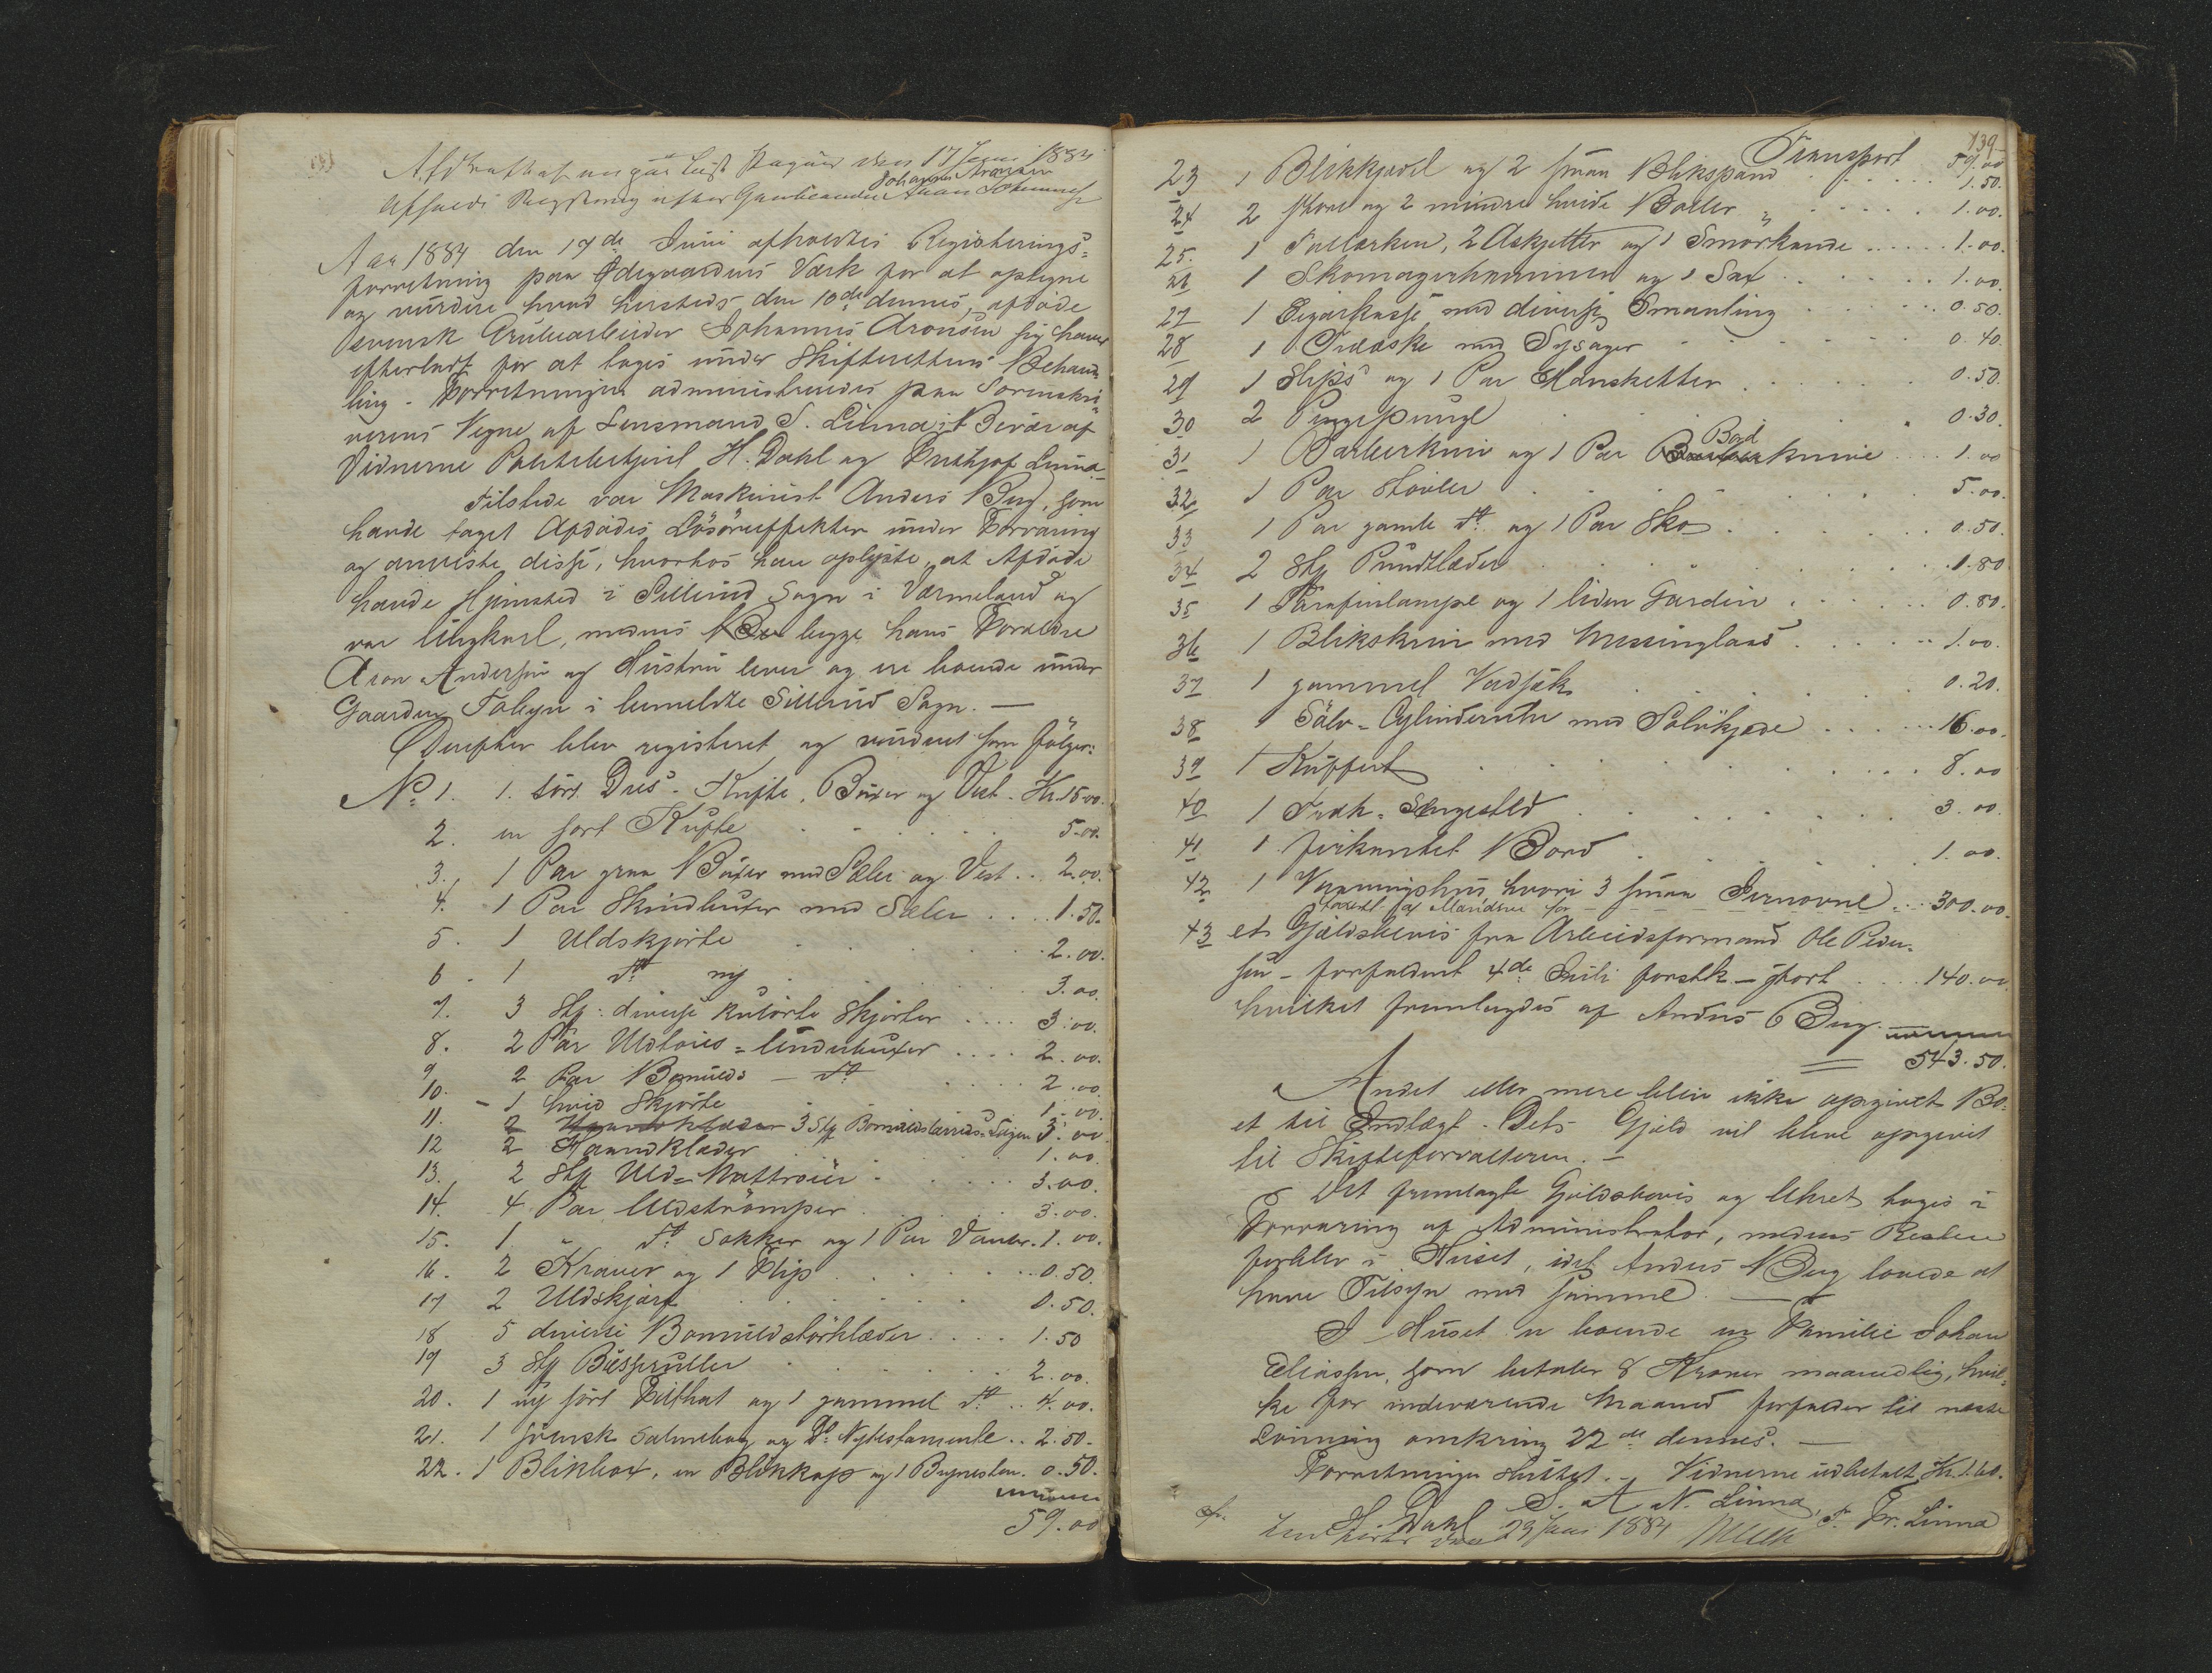 den 17 Juni 1884
Johannes Aronsen
Aar 1884 den 17de Juni afholdtes Registerings-
forretning paa Ødegaardens Værk for at optegne
og vurdere hvad hersteds den 10de dennes afdøde
svensk Grubearbeider Johannes Aronsen sig haver
efterladt for at tages under Skifterettens Behand
ling. Forretningen administreredes paa Sorenskri-
verens Vegne af Lensmand S. Linna i Bivær af
Vidnerne Politibetjent H. Dahl og Frithjof Linna
Tilstede var Maskinist Anders Berg, som
havde taget Afdødes Løsøreeffekter under Forvaring
og anviste disse, hvorhos han oplyste, at Afdøde
havde Hjemsted i Sillerud Sogn i Værmeland og
var Ungkarl, medens begge hans Forældre
Aron Andersen og Hustru lever og ere boende under
Gaarden i bemeldte Sillerud Sogn. —
Derefter blev registeret og vurderet som følger:
No 1. 1. sort Dres - Kufte, Buxer og Vest - Kr. 15.00.
2. en sort Kufte 5.00.
3. 1 Par graa Buxer med Seler og Vest .. 2.00.
4. 1 Par Skindbuxer med Seler .... 1.50.
5. 1 Uldskjorte 2.00.
6. 1 do ny 3.00.
7. 3 Stk: diverse kulørte Skjorter .... 3.00.
8. 2 Par Uldtøies-Underbuxer .... 2.00.
9 2 Par Bomulds — do 2.00
10. 1 hvid Skjorte 1.00.
11. 2 Haandklæder 3 Stk Bomuldslærreds-Lagen 3.00
12 2 Haandklæder 1.00.
13. 2 Stk Uld- 3.00.
14. 4 Par Uldstrømper 3.00.
15. 1 " do Sokker og 1 Par Vanter. 1.00.
16. 2 Kraver og 1 Flip 0.50.
17 2 Uldskjærf 0.50.
18 5 diverse Bomuldstørklæder .... 1.50
19 3 Stk 2.00.
20. 1 ny sort Filthat og 1 gammel do .. 4.00.
21. 1 svensk Salmebog og Do Nytestamente .. 2.50.
22. 1 Blikbox, en Blikkop og 1 Brynesten. 0.50.
59.00
139
Transport 59.00
23 1 Blikkjedel og 2 smaa Blikspand 1.50.
24 2 store og 2 mindre hvide Boller 1.00.
25. 1 Tallerken, 2 Askjetter og 1 Smørkande 1.00.
26 1 Skomagerhammer og 1 Sax 1.00.
27 1 Cigarkasse med diverse Smaating 0.50.
28 1 Træaske med Sysager 0.40
29 1 Slips og 1 Par Mansketter 0.50.
30 2 Pengepunge 0.30.
31 1 Barberkniv og 1 Par Bord knive 1.00
32 1 Par Støvler 5.00.
33 1 Par gamle do og 1 Par Sko 0.50.
34 2 Stk Pundtlæder 1.80
35 1 Parafinlampe og 1 liden Gardin 0.80.
36 1 Blikskrin med Messinglaas 1.00.
37 1 gammel Vadsæk 0.20.
38 1 Sølv-Cylinderuhr med Sølvkjæde 16.00.
39 1 Kuffert 8.00
40 1 Træk-Sengested 3.00.
41 1 firkantet Bord 1.00.
42 1 Vaaningshus hvori 3 smaa Jernovne ... 300.00.
43 et Gjældsbevis fra Arbeidsformand Ole Peder-
sen - forfaldent 4de Juli førstk - stort .... 140.00
hvilket fremlagdes af Anders Berg.
543.50.
Andet eller mere blev ikke opgivet Bo-
et til Indtægt. Dets Gjæld vil blive opgivet
til Skifteforvalteren. —
Det fremlagte Gjældsbevis og Uhret toges i
Forvaring af Administrator, medens Resten
forblev i Huset, idet Anders Berg lovede at
have Tilsyn med samme. —
I Huset er boende en Familie Johan
Eliassen, som betaler 8 Kroner maanedlig, hvil-
ke for indeværende Maaned forfalder til næste
Lønning omkring 22de dennes. —
Forretningen sluttet. — Vidnerne udbetalt Kr. 1.60.
S. A. N. Linna,
H. Dahl F. Fr. Linna
den 23 Juni 1884